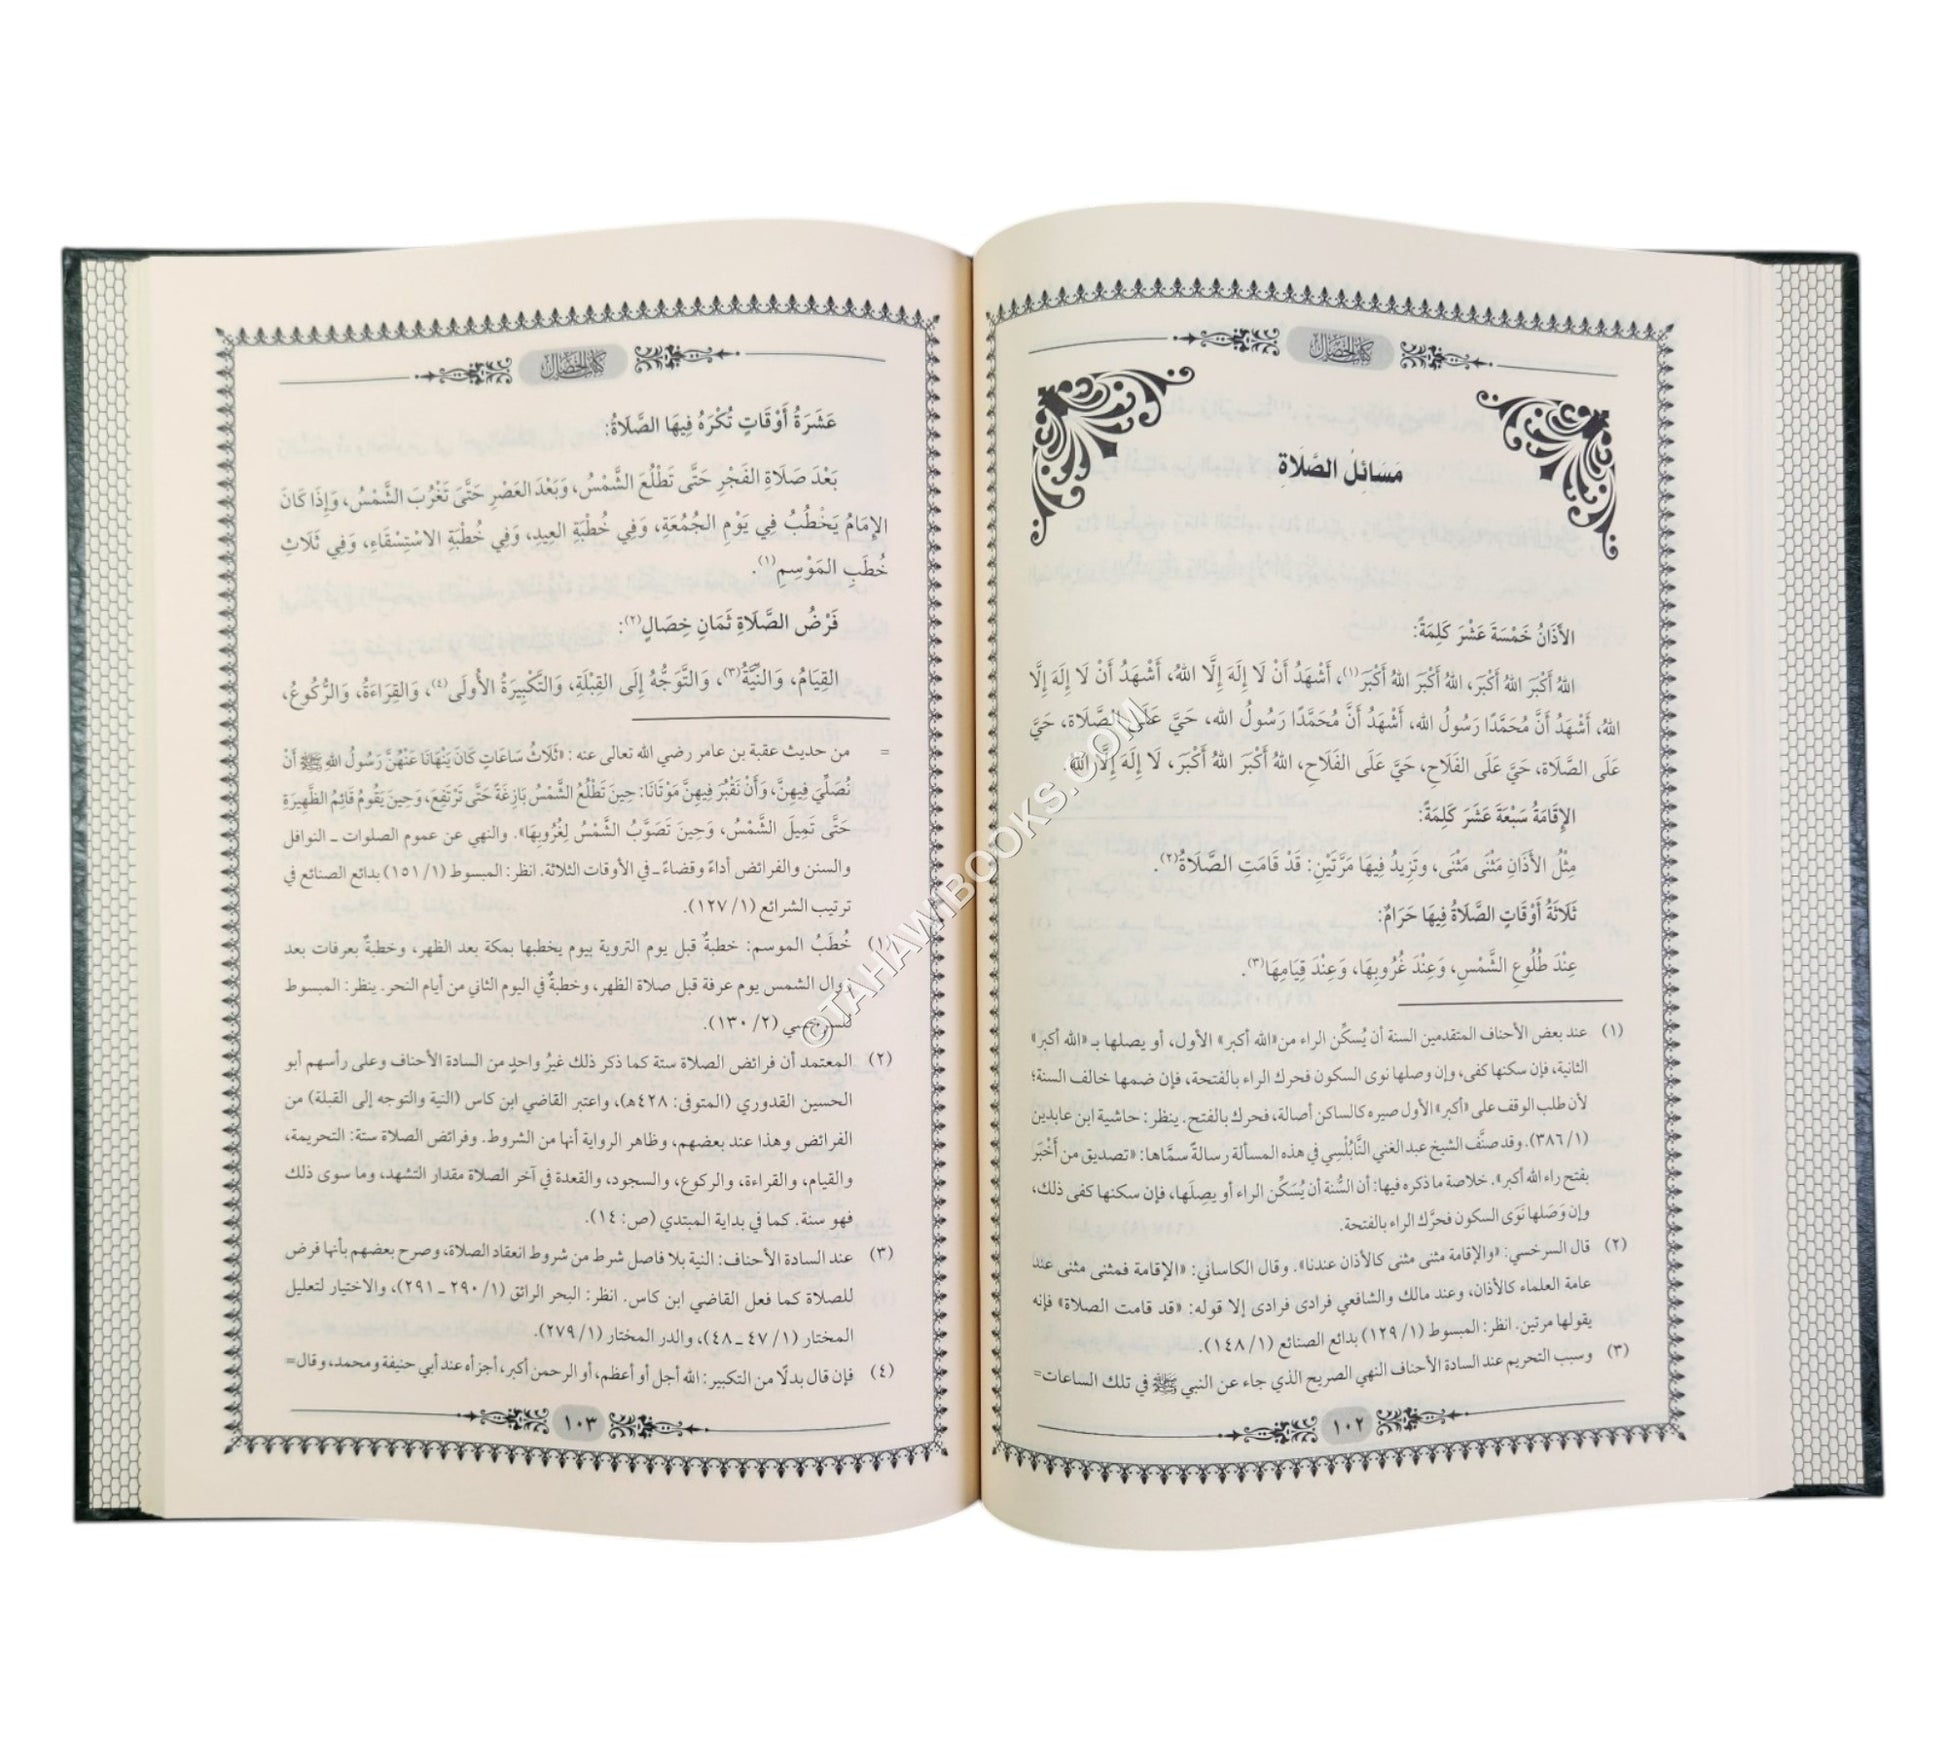 كتاب الخصال
مَسَائِلُ الصَّلَاةِ
الأَذَانُ خَمْسَةَ عَشْرَ كَلِمَةً:
اللهُ أَكْبَرَ اللهُ أَكْبَرَ، اللهُ أَكْبَرَ اللهُ أَكْبَرَ(١)، أَشْهَدُ أَنْ لَا إِلَهَ إِلَّا اللهُ، أَشْهَدُ أَنْ لَا إِلَهَ إِلَّا
اللهُ، أَشْهَدُ أَنَّ مُحَمَّدًا رَسُولُ الله، أَشْهَدُ أَنَّ مُحَمَّدًا رَسُولُ الله، حَيَّ عَلَى الصَّلَاة، حَيَّ
عَلَى الصَّلَاة، حَيَّ عَلَى الفَلَاحِ، حَيَّ عَلَى الفَلَاحِ، اللهُ أَكْبَرَ اللهُ أَكْبَرَ، لَا إِلَهَ إِلَّا اللهُ.
الإِقَامَةُ سَبْعَةَ عَشَرَ كَلِمَةً:
مِثْلُ الأَذَانِ مَثْنَى مَثْنَى، وَتَزِيدُ فِيهَا مَرَّتَيْنِ: قَدْ قَامَتِ الصَّلَاةُ(٢).
ثَلَاثَةُ أَوْقَاتٍ الصَّلَاةُ فِيهَا حَرَامٌ:
عِنْدَ طُلُوعِ الشَّمْسِ، وَعِنْدَ غُرُوبِهَا، وَعِنْدَ قِيَامِهَا(٣).
(١) عند بعض الأحناف المتقدمين السنة أن يُسكِّن الراء من «الله أكبر» الأول، أو يصلها بـ «الله أكبر»
الثانية، فإن سكنها كفى، وإن وصلها نوى السكون فحرك الراء بالفتحة، فإن ضمها خالف السنة؛
لأن طلب الوقف على «أكبر» الأول صيره كالساكن أصالة، فحرك بالفتح. ينظر: حاشية ابن عابدين
(١/ ٣٨٦). وقد صنَّف الشيخ عبد الغني النَّابُلْسِي في هذه المسألة رسالةً سمَّاها: «تصديق من أَخْبَرَ
بفتح راء الله أكبر». خلاصة ما ذكره فيها: أن السُّنة أن يُسَكِّن الراء أو يصِلَها، فإن سكنها كفى ذلك،
وإن وَصَلها نَوَى السكون فحرَّك الراء بالفتحة.
(٢) قال السرخسي: «والإقامة مثنى مثنى كالأذان عندنا». وقال الكاساني: «الإقامة فمثنى مثنى عند
عامة العلماء كالأذان، وعند مالك والشافعي فرادى فرادى إلا قوله: «قد قامت الصلاة» فإنه
يقولها مرتين. انظر: المبسوط (١/ ١٢٩) بدائع الصنائع (١/ ١٤٨).
(٣) وسبب التحريم عند السادة الأحناف النهي الصريح الذي جاء عن النبي ﷺ في تلك الساعات=
١٠٢
كتاب الخصال
عَشَرَةُ أَوْقَاتٍ تُكْرَهُ فِيهَا الصَّلَاةُ:
بَعْدَ صَلَاةِ الفَجْرِ حَتَّى تَطْلُعَ الشَّمْسُ، وَبَعْدَ العَصْرِ حَتَّىَ تَغْرُبَ الشَّمْسُ، وَإِذَا كَانَ
الإِمَامُ يَخْطُبُ فِي يَوْمِ الجُمُعَةِ، وَفِي خُطْبَةِ العِيدِ، وَفِي خُطْبَةِ الاسْتِسْقَاءِ، وَفِي ثَلَاثِ
خُطَبِ المَوْسِمِ(١).
فَرْضُ الصَّلَاةِ ثَمَانِ خِصَالٍ(٢):
القِيَامُ، وَالنِّيَّةُ(٣)، وَالتَّوَجُّهُ إِلَى القِبْلَةِ، وَالتَّكْبِيرَةُ الأُولَى(٤)، وَالقِرَاءَةُ، وَالرُّكُوعُ،
= من حديث عقبة بن عامر رضي الله تعالى عنه : «ثَلَاثُ سَاعَاتٍ كَانَ يَنْهَانَا عَنْهُنَّ رَسُولُ اللهِ ﷺ أَنْ
نُصَلِّيَ فِيهِنَّ، وَأَنْ نَقْبُرَ فِيهِنَّ مَوْتَانَا: حِينَ تَطْلُعُ الشَّمْسُ بَازِغَةً حَتَّى تَرْتَفِعَ، وَحِينَ يَقُومُ قَائِمُ الظَّهِيرَةِ
حَتَّى تَمِيلَ الشَّمْسُ، وَحِينَ تَصَوَّبُ الشَّمْسُ لِغُرُوبِهَا». والنهي عن عموم الصلوات ـ النوافل
والسنن والفرائض أداءً وقضاءً ـ في الأوقات الثلاثة. انظر: المبسوط (١/ ١٥١) بدائع الصنائع في
ترتيب الشرائع (١/ ١٢٧).
(١) خُطَبُ الموسم: خطبةٌ قبل يوم التروية بيوم يخطبها بمكة بعد الظهر، وخطبةٌ بعرفات بعد
زوال الشمس يوم عرفة قبل صلاة الظهر، وخطبةٌ في اليوم الثاني من أيام النحر. ينظر: المبسوط
للسرخسي (٢/ ١٣٠).
(٢) المعتمد أن فرائض الصلاة ستة كما ذكر ذلك غيرُ واحدٍ من السادة الأحناف وعلى رأسهم أبو
الحسين القدوري (المتوفى: ٤٢٨هـ)، واعتبر القاضي ابن كاس (النية والتوجه إلى القبلة) من
الفرائض وهذا عند بعضهم، وظاهر الرواية أنها من الشروط. وفرائض الصلاة ستة: التحريمة،
والقيام، والقراءة، والركوع، والسجود، والقعدة في آخر الصلاة مقدار التشهد، وما سوى ذلك
فهو سنة. كما في بداية المبتدي (ص: ١٤).
(٣) عند السادة الأحناف: النية بلا فاصل شرط من شروط انعقاد الصلاة، وصرح بعضهم بأنها فرض
للصلاة كما فعل القاضي ابن كاس. انظر: البحر الرائق (١/ ٢٩٠ ـ ٢٩١)، والاختيار لتعليل
المختار (١/ ٤٧ ـ ٤٨)، والدر المختار (١/ ٢٧٩).
(٤) فإن قال بدلًا من التكبير: الله أجل أو أعظم، أو الرحمن أكبر، أجزأه عند أبي حنيفة ومحمد، وقال=
١٠٣
©TAHAWIBOOKS.COM